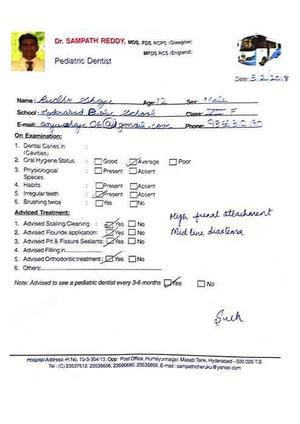 Dr. SAMPATH REDDY, MDS, FDS RCPS (Glasgow)
MFDS RCS (England),
Pediatric Dentist
Date: 3.2.2018
Name: Age: 12 Sex: Male
School: Hyderabad School Class: F
E-mail: @gmail.com Phone:
On Examination:
1. Dental Caries in :
(Cavities)
2. Oral Hygiene Status : Good Average Poor
3. Physiological : Present Absent
Spaces
4. Habits : Present Absent
5. Irregular teeth : Present Absent
6. Brushing twice : Yes No
Adviced Treatment:
1. Advised Scaling/Cleaning : Yes No
2. Advised Flouride application: Yes No
3. Advised Pit & Fissure Sealants: Yes No
4. Advised Filling in
5. Advised Orthodontic treatment : Yes No
6. Others:
High frenal attachment
Midline diastema
Note: Advised to see a pediatric dentist every 3-6 months Yes No
Hospital Address: H.No. 10-3-304/13, Opp: Post Office, Humayunnagar, Masab Tank, Hyderabad - 500 028 T.S.
Tel : (C) 23537512, 23535656, 23590690, 23535858, E-mail : sampathcheruku@yahoo.com